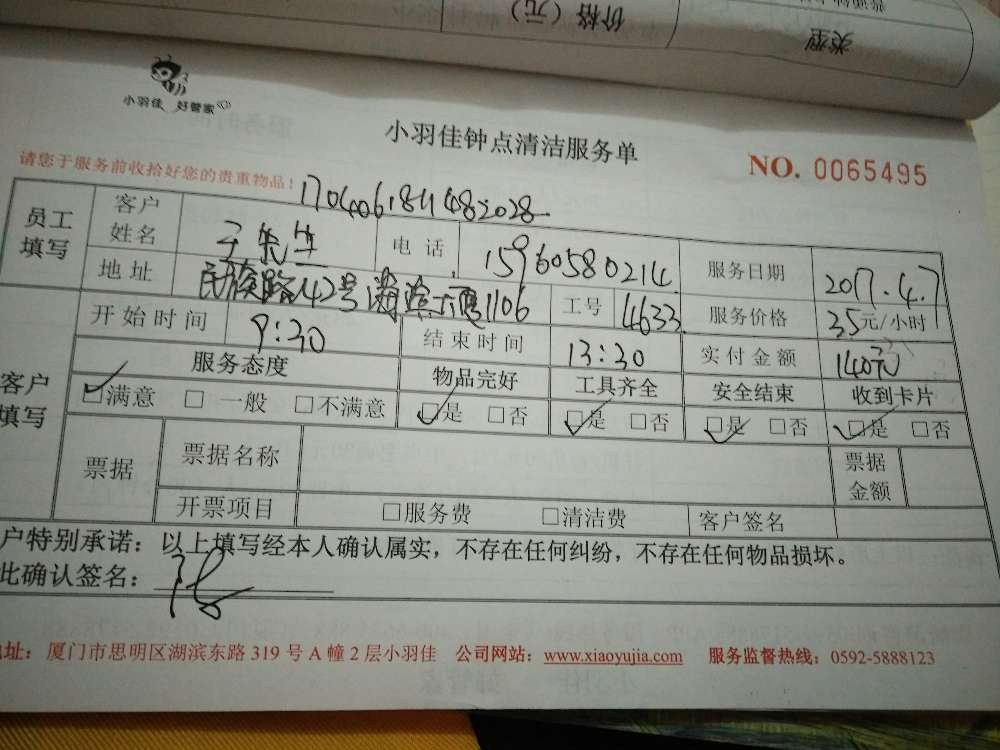 价格（元）
类型
小羽佳 好管家
小羽佳钟点清洁服务单
请您于服务前收拾好您的贵重物品！
NO. 0065495
员工填写
客户姓名
先生
电话
15960580214
服务日期
2017.4.7
地址
民族路42号 1106
工号
4633
服务价格
35元/小时
开始时间
9:30
结束时间
13:30
实付金额
140元
客户填写
服务态度
物品完好
工具齐全
安全结束
收到卡片
☑满意 □ 一般 □不满意
☑是 □否
☑是 □否
☑是 □否
☑是 □否
票据
票据名称
票据金额
开票项目
□服务费 □清洁费
客户签名
户特别承诺：以上填写经本人确认属实，不存在任何纠纷，不存在任何物品损坏。
此确认签名：
地址：厦门市思明区湖滨东路 319 号 A 幢 2 层小羽佳 公司网站：www.xiaoyujia.com 服务监督热线：0592-5888123